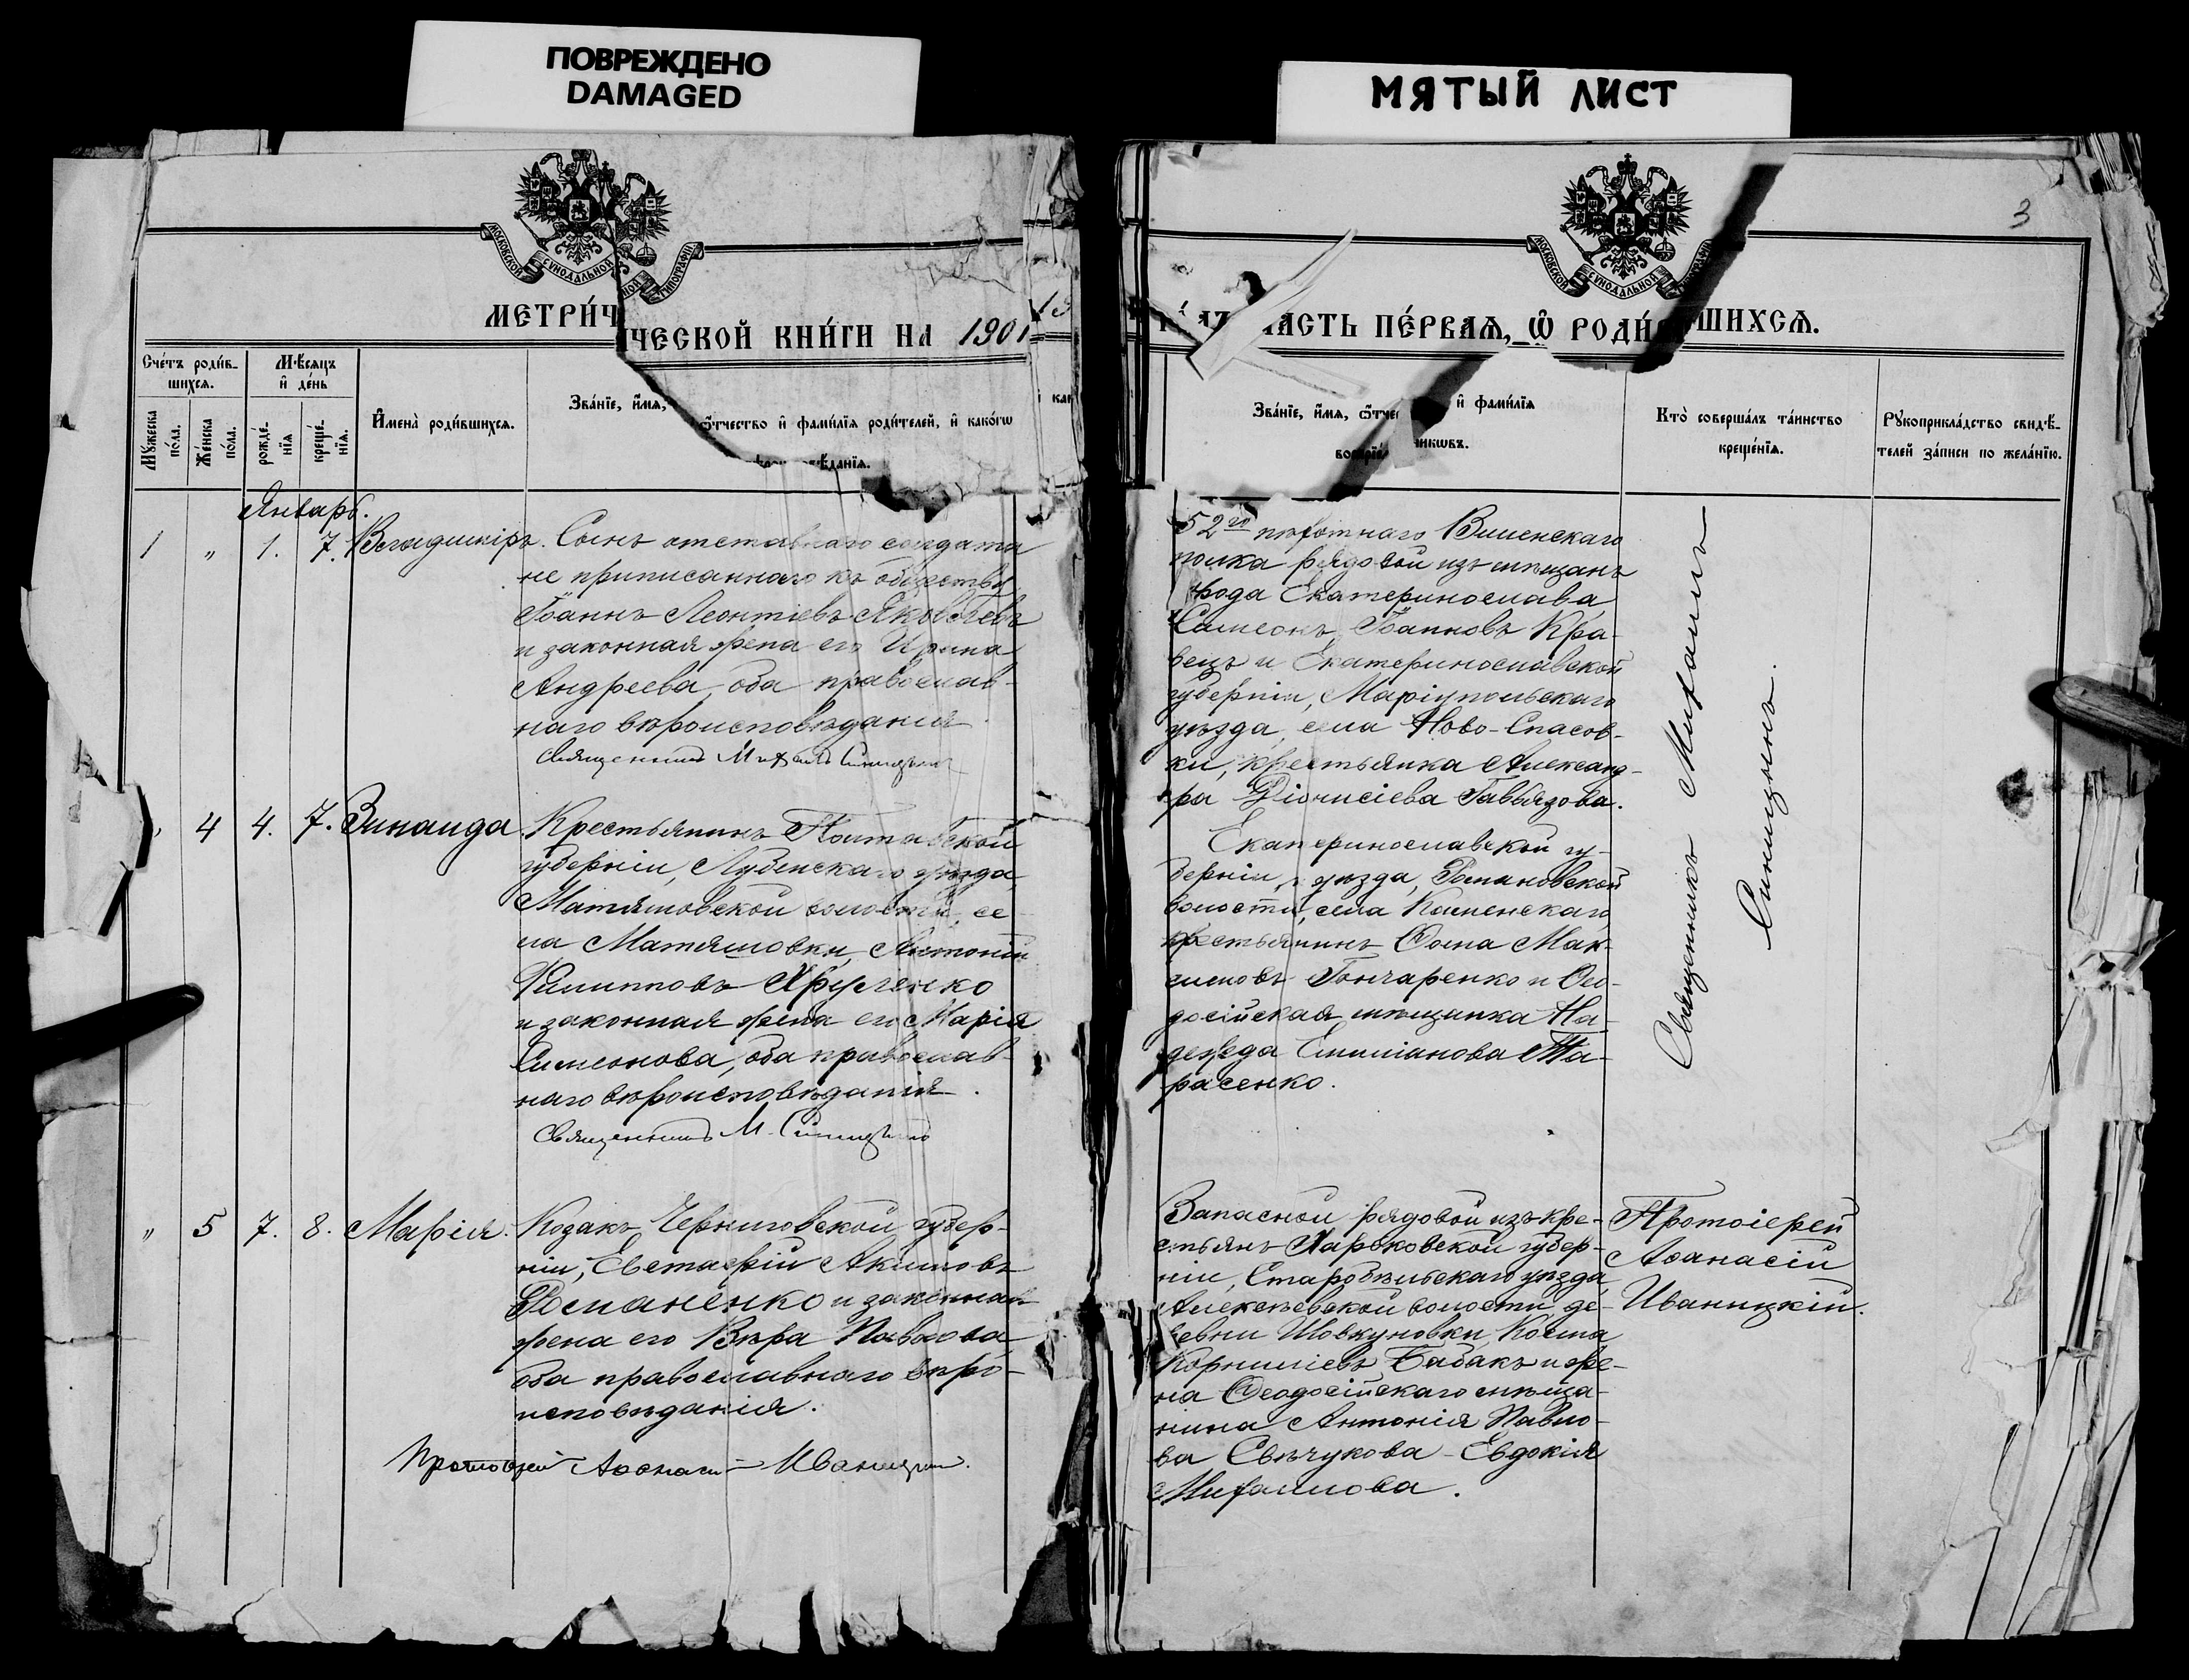 ПОВРЕЖДЕНО
DAMAGED
МЯТЫЙ ЛИСТ
3
МОСКОВСКОЙ СѴНОДАЛЬНОЙ ТИПОГРАФІИ
МОСКОВСКОЙ СѴНОДАЛЬНОЙ
МЕТРИ́Ч
ЧЕСКОЙ КНИ́ГИ НА 1901
ЧАСТЬ ПЕ́РВАЯ, Ѽ РОДИ́ ВШИХСЯ.
Сче́тъ роди́в-
шихся.
Мѣсяцъ
и҆ де́нь
Мꙋ́жеска
по́ла.
Же́нска
по́ла.
рожде́-
нїя
креще́-
нїя.
И҆мена̀ роди́вшихся.
Зва́нїе, и҆́мя,
ѻ҆́тчество и҆ фами́лїя роди́телей, и҆ како́гѡ
ѣданїя.
Зва́нїе, и҆́мя, ѻ҆́тчес и҆ фами́лїя
воспрїе́ никѡвъ.
Кто̀ соверша́лъ та́инство
креще́нїя.
Рꙋкоприкла́дство свидѣ́-
телей за́писи по жела́нїю.
Январь.
1 „ 1. 7. Владиміръ. Сынъ отставнаго солдата
не приписаннаго къ обществу
Іоаннъ Леонтіевъ Яковлевъ
и законная жена его Ирина
Андреева, оба православ-
наго вѣроисповѣданія.
Священникъ Михаилъ Синицынъ
52го пѣхотнаго Виленскаго
полка рядовой изъ мѣщанъ
города Екатеринослава
Симеонъ Іоанновъ Кра-
вецъ и Екатеринославской
губерніи, Маріупольскаго
уѣзда, села Ново-Спасов-
ки, крестьянка Александ-
ра Діонисіева Гавязова.
Священникъ Михаилъ
Синицынъ.
„ 4 4. 7. Зинаида. Крестьянинъ Полтавской
губерніи, Лубенскаго уѣзда
Матяшовской волости, се-
ла Матяшовки, Антоній
Филипповъ Хруленко
и законная жена его Марія
Симеонова, оба православ-
наго вѣроисповѣданія.
Священникъ М. Синицынъ
Екатеринославской гу-
берніи, и уѣзда, Романовской
волости, села Каменскаго
крестьянинъ Ѳома Мак-
симовъ Гончаренко и Ѳео-
досійская мѣщанка На-
дежда Емиліанова Та-
расенко.
„ 5 7. 8. Марія. Козакъ Черниговской губер-
ніи, Евстафій Акимовъ
Романенко и законная
жена его Вѣра Павлова
оба православнаго вѣро-
исповѣданія.
Протоіерей Аѳанасій Иваницкій.
Запасной рядовой изъ кре-
стьянъ Харьковской губер-
ніи, Старобѣльскаго уѣзда,
Алексѣевской волости, де-
ревни Шовкуновки, Косма
Корниліевъ Бабакъ и же-
на Ѳеодосійскаго мѣща-
нина Антонія Павло-
ва Свѣчукова - Евдокія
Михаилова.
Протоіерей
Аѳанасій
Иваницкій.